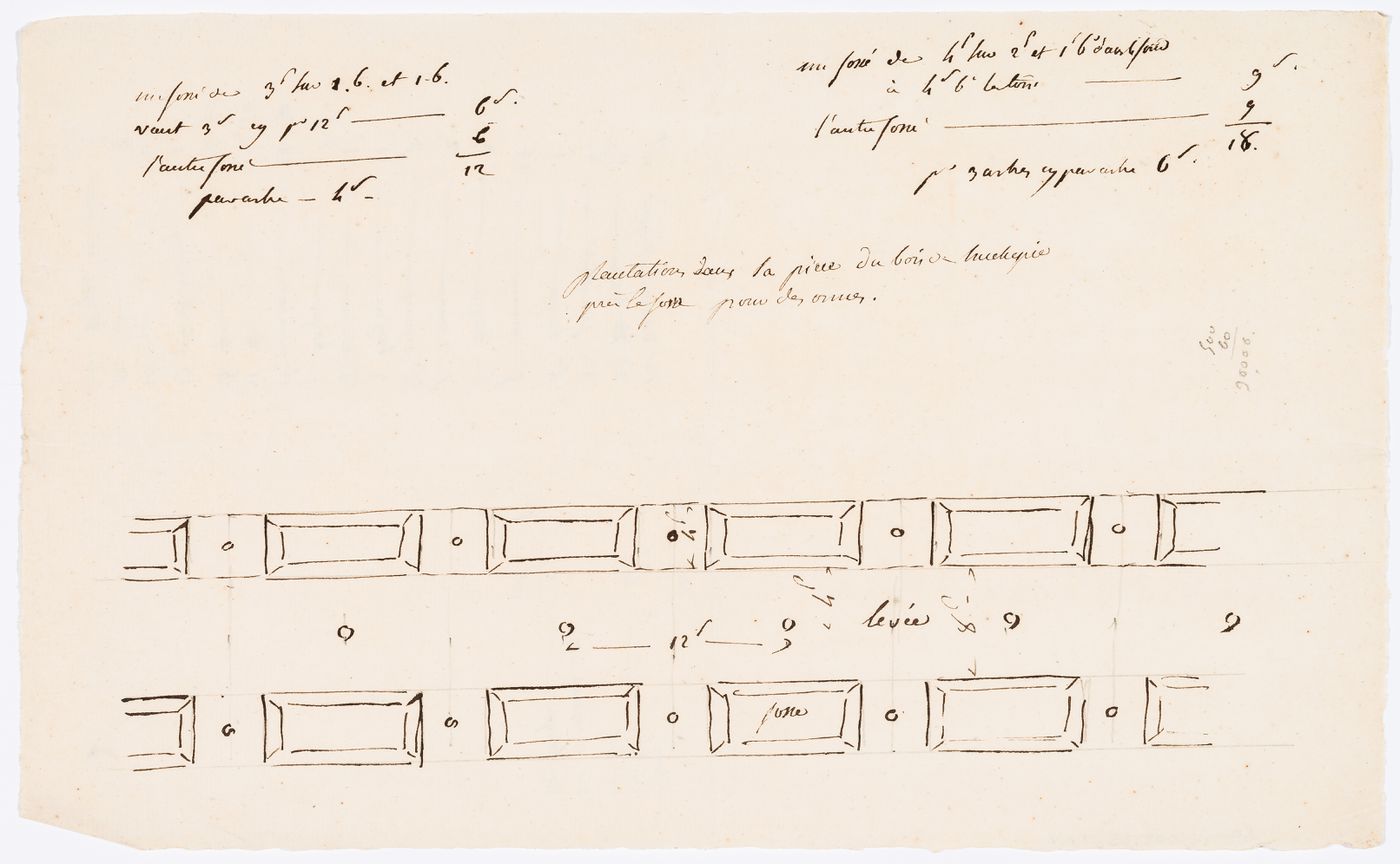 un fossé de 3 sur 1.6. et 1-6.
vaut 3 cy pr 12 6
l'autre fossé 6
12
par arbre - 4 -
un fossé de 4 sur 2 et 1 6 dans le fond
à 4 6 la toise 9
l'autre fossé 9
18.
pr 3 arbres cy par arbre 6
plantations dans la piece du bois de
près le fossé pour des ormes.
500
60
4
4
levée
8
12
fosse